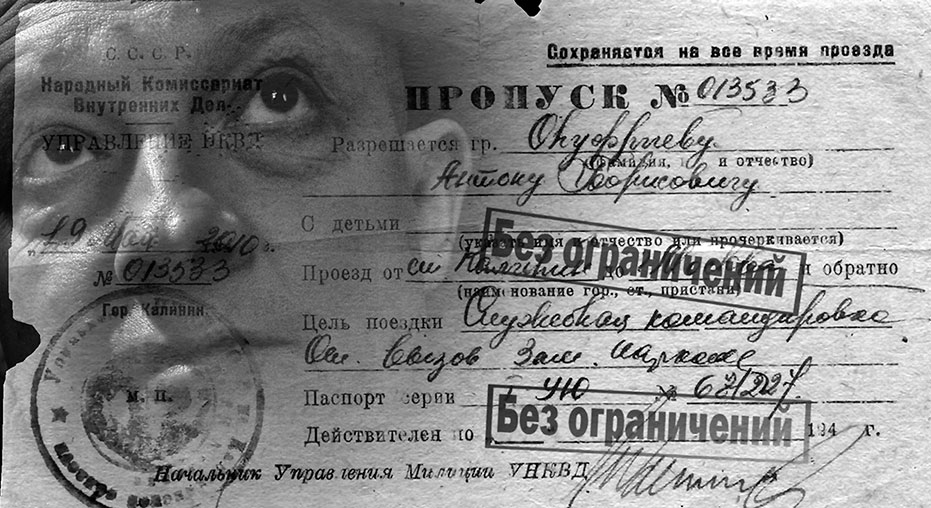 С. С. С. Р.
Народный Комиссариат
Внутренних Дел
УПРАВЛЕНИЕ НКВД
"19" Мая 2010 г.
№ 013533
Гор. Калинин.
М. П.
Сохраняется на все время проезда
ПРОПУСК № 013533
Разрешается гр. Онуфриеву
(фамилия, и отчество)
Антону Борисовичу
С детьми
(указать имя и отчество или прочеркивается)
Проезд от ст Калинин до и обратно
(наименование гор., ст., пристани)
Без ограничений
Цель поездки Служебная командировка
Осн. Вызов Зам. наркома
Паспорт серии № 621227
Без ограничений
Действителен по 194 г.
Начальник Управления Милиции УНКВД